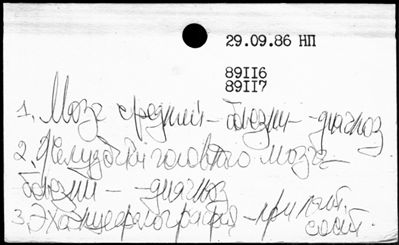 29.09.86 НП
89116
89117
1. Мозг средний - болезни - диагноз
2. Желудочки головного мозга -
болезни - диагноз
3. Эхоэнцефалография - при пат.
сост.